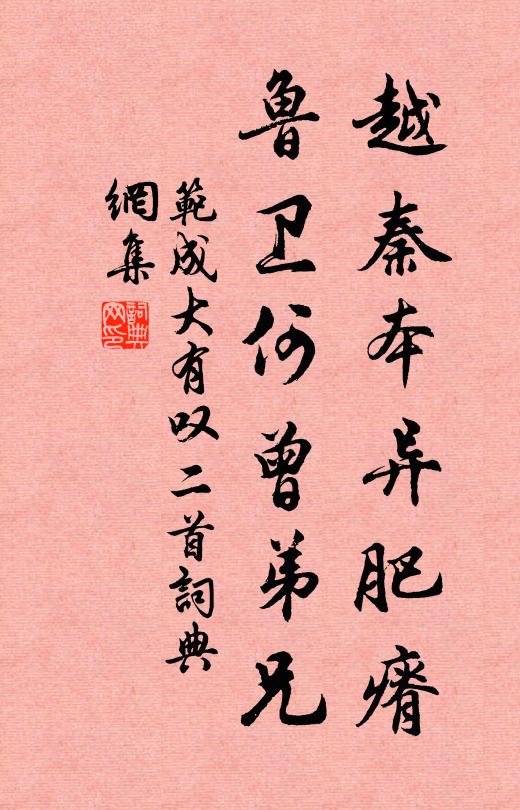 越秦本异肥瘠
鲁卫何曾弟兄
範成大有叹二首詞典
網集
詞典網印